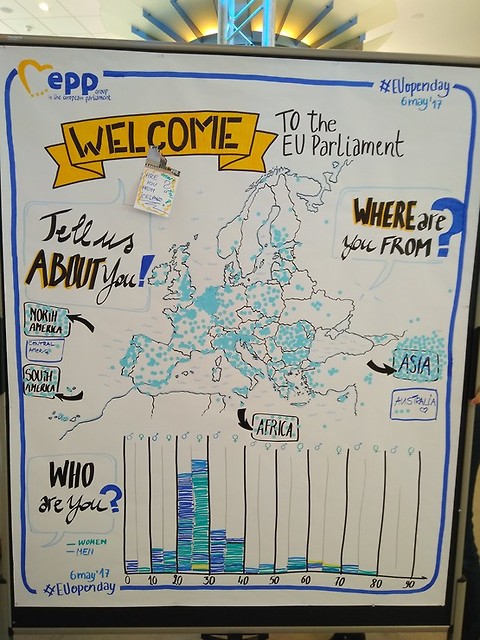 epp
group
in the european parliament
#EUopenday
6 may '17
WELCOME
TO the
EU Parliament
ARE
YOU
FROM
ICELAND
Tell us
ABOUT You!
WHERE are
you FROM?
NORTH
AMERICA
CENTRAL
AMERICA
SOUTH
AMERICA
ASIA!
AUSTRALIA
AFRICA
WHO
are you?
WOMEN
MEN
0 10 20 30 40 50 60 70 80 90
6 may '17
#EUopenday